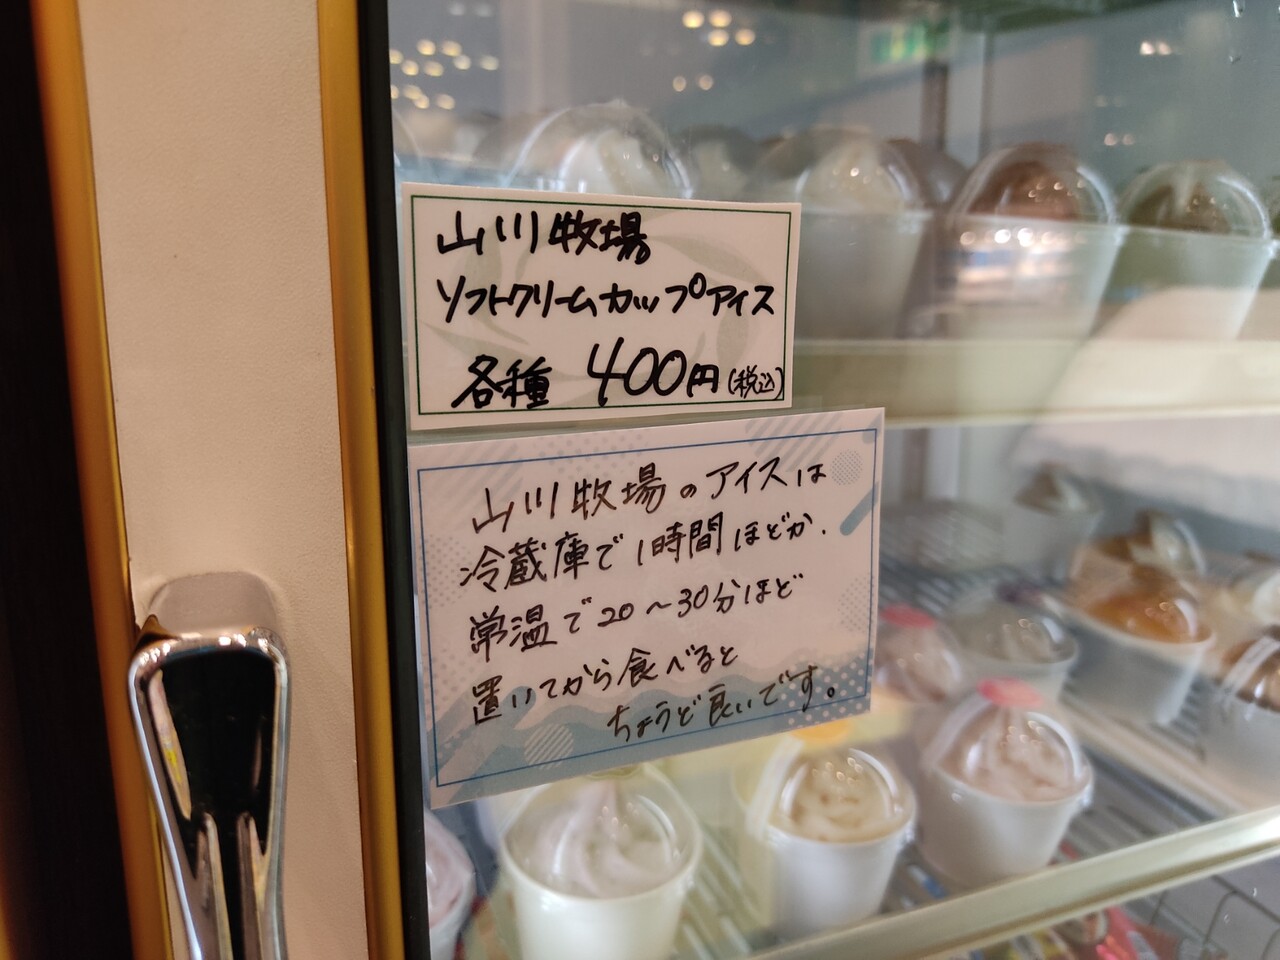 山川牧場
ソフトクリームカップアイス
各種 400円(税込)
山川牧場のアイスは
冷蔵庫で1時間ほどか、
常温で20～30分ほど
置いてから食べると
ちょうど良いです。